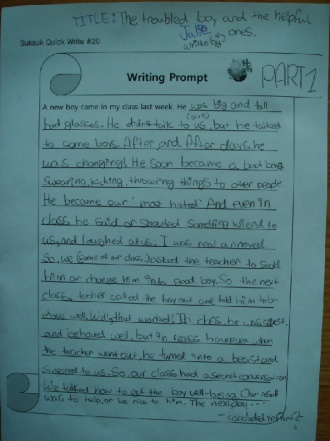 TITLE: The troubled boy and the helpful ones.
Suksuk Quick Write #20
Julie
write by
Writing Prompt
PART 1
A new boy came in my class last week. He was big and tall
(girls)
had glasses. He didn't talk to us, but he talked
to some boys. After and After days, he
was changing! He soon became a bad boy
swearing, kicking, throwing things to other people
He became our "most hated" And even in
class, he said or shouted something wierd to
us, and laughed at us. I was real annoyed.
So, we (some of our class) asked the teacher to scold
him or change him into good boy. So the next
class, teacher called the boy out and told him to be-
have well. Well, that worked! In class, he was
and behaved well, but in recess however, when
the teacher went out, he turned into a beast and
to us. So our class had a secret conversation
We talked how to get the boy well-being. Our result
was to help, or be nice to him. The next day...